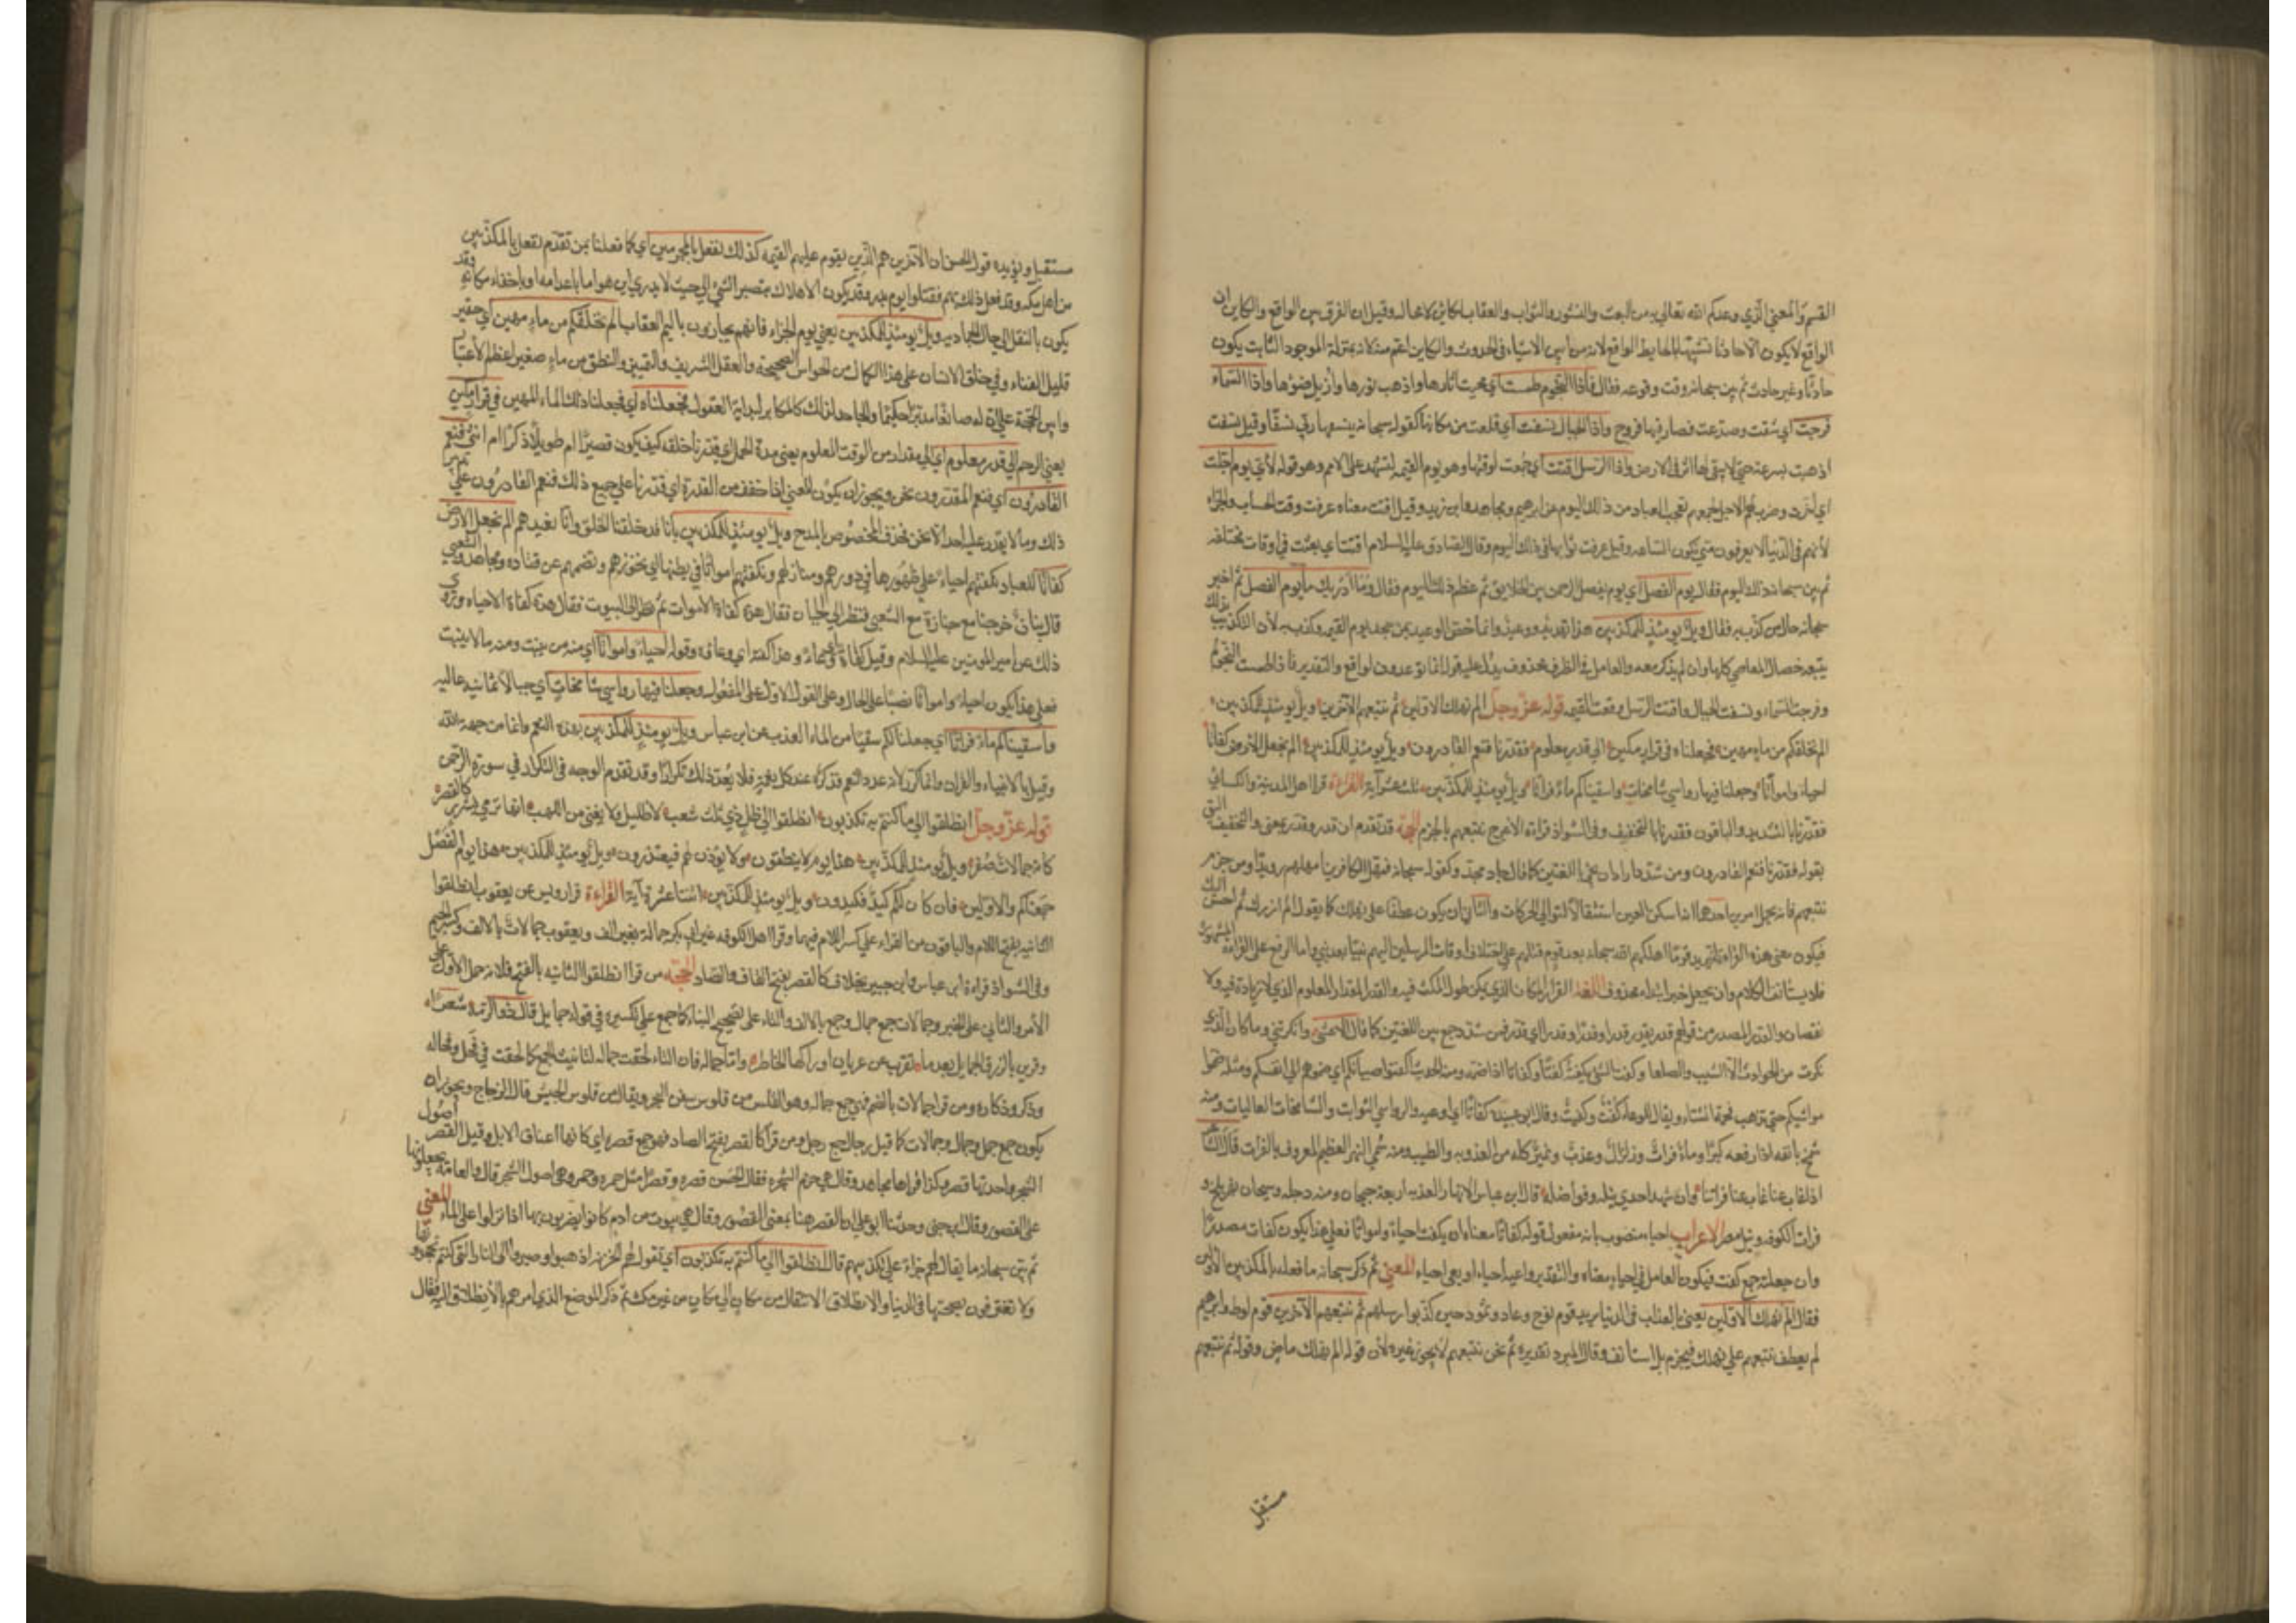 القسم والمعنى الذي وعدكم الله تعالى به من البعث والنشور والثواب والعقاب لكاين لا محالة وقيل ان الفرق بين الواقع والكاين ان
الواقع لا يكون الا حادثا تشبيها بالحايط الواقع لانه من ابين الاشياء في الحدوث والكاين اعم منه لانه بمنزلة الموجود الثابت يكون
حادثا وغير حادث ثم بين سبحانه وقت وقوعه فقال فاذا النجوم طمست اي محيت آثارها واذهب نورها وأزيل ضوؤها واذا السماء
فرجت اي شقت وصدعت فصار فيها فروج واذا الجبال نسفت اي قلعت من مكانها كقوله سبحانه ينسفها ربي نسفا وقيل نسفت
اذهبت بسرعة حتى لا يبقى لها اثر في الارض واذا الرسل اقتت اي جمعت لوقتها وهو يوم القيمة لتشهد على الامم وهو قوله لأي يوم اجلت
اي اخرت وضرب لهم الاجل لجمعهم تعجب العباد من ذلك اليوم عن ابرهيم ومجاهد وابن زيد وقيل اقتت معناه عرفت وقت الحساب والجزاء
لأنهم في الدنيا لا يعرفون متى تكون الساعة وقيل عرفت ثوابها في ذلك اليوم وقال الصادق عليه السلام اقتت اي بعثت في اوقات مختلفة
ثم بين سبحانه ذلك اليوم فقال ليوم الفصل اي يوم يفصل الرحمن بين الخلايق ثم عظم ذلك اليوم فقال وما ادريك ما يوم الفصل ثم اخبر
سبحانه حال من كذب به فقال ويل يومئذ للمكذبين هذا تهديد ووعيد وانما خص الوعيد بمن جحد يوم القيمة وكذب به لأن التكذيب بذلك
يتبعه خصال المعاصي كلها وان لم يذكر معه والعامل في الظرف محذوف يدل عليه قوله انما توعدون لواقع والتقدير فاذا طمست النجوم
وفرجت السماء ونسفت الجبال واقتت الرسل وقعت القيمة قوله عز وجل الم نهلك الاولين ثم نتبعهم الآخرين ويل يومئذ للمكذبين
الم نخلقكم من ماء مهين فجعلناه في قرار مكين الى قدر معلوم فقدرنا فنعم القادرون ويل يومئذ للمكذبين الم نجعل الارض كفاتا
احياء وامواتا وجعلنا فيها رواسي شامخات واسقيناكم ماء فراتا ويل يومئذ للمكذبين ثلث عشر آية القراءة قرا اهل المدينة والكسائي
فقدرنا بالتشديد والباقون فقدرنا بالتخفيف وفي الشواذ قراءة الاعرج نتبعهم بالجزم الحجة قد تقدم ان قدر وقدر بمعنى والتخفيف اليق
بقوله فقدرنا فنعم القادرون ومن شدد اراد ان يجي باللغتين كما قال جاد مجد وكقوله سبحانه فمهل الكافرين امهلهم رويدا ومن جزم
نتبعهم فانه يحتمل امرين احدهما انه اسكن العين استثقالا لتوالي الحركات والثاني ان يكون عطفا على نهلك كما يقول الم ازرك ثم احسن اليك
فيكون معنى هذه القراءة انه يريد قوما اهلكهم الله سبحانه بعد قوم قبلهم على اختلاف اوقات المرسلين اليهم نبيا بعد نبي واما الرفع على القراءة المشهورة
فلاستيناف الكلام وان يجعل خبر ابتداء محذوف اللغة القرار المكان الذي يمكن طول المكث فيه والقدر المقدار المعلوم الذي لا زيادة فيه ولا
نقصان والقدر المصدر من قولهم قدر يقدر قدرا وقدرا وقدر اي قدر فمن شدد جمع بين اللغتين كما قال الاعشى وانكرتني وما كان الذي
نكرت من الحوادث الا الشيب والصلعا وكفت الشيء يكفته كفتا وكفاتا اذا ضمه ومنه الحديث اكفتوا صبيانكم اي ضموهم الى انفسكم ومثله ضموا
مواشيكم حتى تذهب فحمة الشتاء ويقال للوعاء كفت وكفيت وقال ابو عبيدة كفاتا اي اوعية والرواسي الثوابت والشامخات العاليات ومنه
شمخ بانفه اذا رفعه كبرا وماء فرات وزلال وعذب ونمير كله من العذوبة والطيب ومنه سمي النهر العظيم المعروف بالفرات قال الشاعر
اذا غاب عنا غاب عنا فراتنا وان شهد اجدى نيله وفواضله قال ابن عباس الانهار العذبة اربعة جيحان ومنه دجلة وسيحان نهر بلخ و
فرات الكوفة ونيل مصر الاعراب احياء منصوب بانه مفعول قوله كفاتا معناه ان يكفت احياء وامواتا فعلى هذا يكون كفات مصدرا
وان جعلته جمع كفت فيكون العامل في احياء معناه والتقدير واعية احياء او يعي احياء المعنى ثم ذكر سبحانه ما فعله بالمكذبين الاولين
فقال الم نهلك الاولين يعني بالعذاب في الدنيا يريد قوم نوح وعاد وثمود حين كذبوا رسلهم ثم نتبعهم الآخرين قوم لوط وابرهيم
لم يعطف نتبعهم على نهلك فيجزم بل استانف وقال المبرد تقديره ثم نحن نتبعهم لا يجوز غيره لأن قوله الم نهلك ماض وقوله ثم نتبعهم
مستقبل
مستقبل ويؤيده قول الحسن ان الآخرين هم الذين يقوم عليهم القيمة كذلك نفعل بالمجرمين اي كما فعلنا بمن تقدم نفعل بالمكذبين
من اهل مكة وقد فعل ذلك بهم فقتلوا يوم بدر وقد يكون الاهلاك بتصير الشيء الى حيث لا يدري اين هو اما باعدامه او باخفاء مكانه وقد
يكون بالنقل الى حال الجمادية ويل يومئذ للمكذبين يعني يوم الجزاء فانهم يجازون باليم العقاب الم نخلقكم من ماء مهين اي حقير
قليل الغناء وفي خلق الانسان على هذا الكمال من الحواس الصحيحة والعقل الشريف والتمييز والنطق من ماء صغير اعظم الاعتبا
وابين الحجة على ان له صانعا مدبرا حكيما والجاحد لذلك كالمكابر لبداية العقول فجعلناه اي فجعلنا ذلك الماء المهين في قرار مكين
يعني الرحم الى قدر معلوم اي الى مقدار من الوقت المعلوم يعني مدة الحمل اي قدرنا خلقه كيف يكون قصيرا ام طويلا ذكرا ام انثى فنعم
القادرون اي فنعم المقدرون نحن ويجوز ان يكون المعنى اذا خفف من القدرة اي قدرنا على جميع ذلك فنعم القادرون على تدبير
ذلك وما لا يقدر عليه احد الا نحن فحذف المخصوص بالمدح ويل يومئذ للمكذبين بانا قد خلقنا الخلق وانا نعيدهم الم نجعل الارض
كفاتا للعباد تكفتهم احياء على ظهورها في دورهم ومنازلهم وتكفتهم امواتا في بطنها اي تحوزهم وتضمهم عن قتادة ومجاهد والشعبي
قال بنان خرجنا مع جنازة مع الشعبي فنظر الى الجبان فقال هذه كفاة الاموات ثم نظر الى البيوت فقال هذه كفاة الاحياء وروي
ذلك عن امير المومنين عليه السلام وقيل كفاتا وعاء وهذا كفته اي وعاؤه وقوله احياء وامواتا اي منه من ينبت ومنه ما لا ينبت
فعلى هذا يكون احياء وامواتا نصبا على الحال وعلى القول الاول على المفعول وجعلنا فيها رواسي شامخات اي جبالا ثابتة عالية
واسقيناكم ماء فراتا اي جعلنا لكم سقيا من الماء العذب عن ابن عباس ويل يومئذ للمكذبين بهذه النعم وانها من جهة الله
وقيل بالانبياء والقران وانما كرر لانه عدد النعم فذكره عند كل نعمة فلا يعد ذلك تكرارا وقد تقدم الوجه في التكرار في سورة الرحمن
قوله عز وجل انطلقوا الى ما كنتم به تكذبون انطلقوا الى ظل ذي ثلث شعب لا ظليل ولا يغني من اللهب انها ترمي بشرر كالقصر
كانه جمالات صفر ويل يومئذ للمكذبين هذا يوم لا ينطقون ولا يؤذن لهم فيعتذرون ويل يومئذ للمكذبين هذا يوم الفصل
جمعناكم والاولين فان كان لكم كيد فكيدون ويل يومئذ للمكذبين اثنتا عشرة آية القراءة قرا رويس عن يعقوب انطلقوا
الثانية بفتح اللام والباقون من القراء على كسر اللام فيهما وقرا اهل الكوفة غير ابي بكر جمالة بغير الف ويعقوب جمالات بالالف وكسر الجيم
وفي الشواذ قراءة ابن عباس وابن جبير بخلاف كالقصر بفتح القاف والصاد الحجة من قرا انطلقوا الثانية بالفتح فلانه حمل الاول على
الأمر والثاني على الخبر وجمالات جمع جمال وجمع بالالف والتاء على تصحيح البناء كما جمع على تكسيره في قوله جمايل قال ذو الرمة شعر
وقربن بالزرق الجمايل بعد ما تقوب عن غربان اوراكها الخاطر واما جمالة فان التاء لحقت جمالة لتانيث الجمع كما لحقت في فحل وفحالة
وذكر وذكارة ومن قرا جمالات بالضم فهي جمع جمالة وهو القلس من قلوس سفن البحر ويقال من قلوس الجسر قال الزجاج ويجوز ان
يكون جمع جمل وجمال وجمالات كما قيل رجال جمع رجل ومن قرا كالقصر بفتح الصاد فهو جمع قصرة اي كانها اعناق الابل وقيل القصر اصول
الشجر واحدتها قصرة وكذا قراها مجاهد وقال هي حزم الشجر فقال الحسن قصرة وقصر مثل جمرة وجمر وهي اصول الشجر قال والعامة يجعلونها
على القصور وقال ابن جني وحدثنا ابو علي ان القصر هنا بمعنى القصور وقال هي بيوت من ادم كانوا يضربونها اذا نزلوا على الماء المعنى
ثم بين سبحانه ما يقال لهم جزاء على تكذيبهم فقال انطلقوا الى ما كنتم به تكذبون اي تقول لهم الخزنة اذهبوا وصيروا الى النار التي كنتم تجحدونها
ولا تعترفون بصحتها في الدنيا والانطلاق الانتقال من مكان الى مكان من غير مكث ثم ذكر الموضع الذي امرهم بالانطلاق اليه فقال